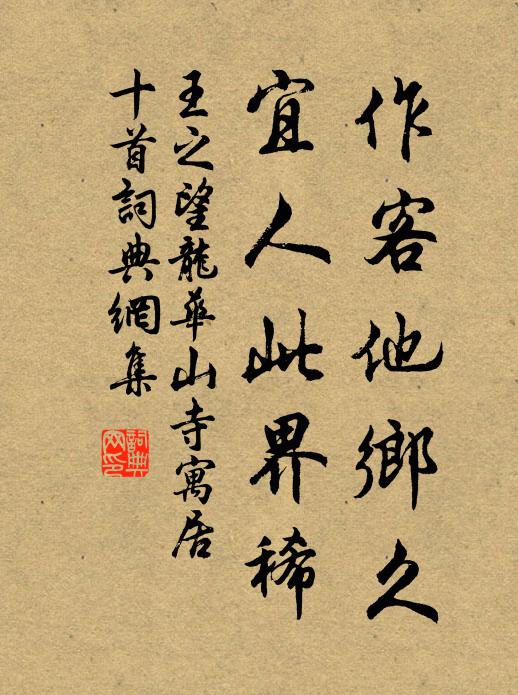 作客他鄉久
宜人此界稀
王之望龍華山寺寓居
十首詞典網集
詞典
网印